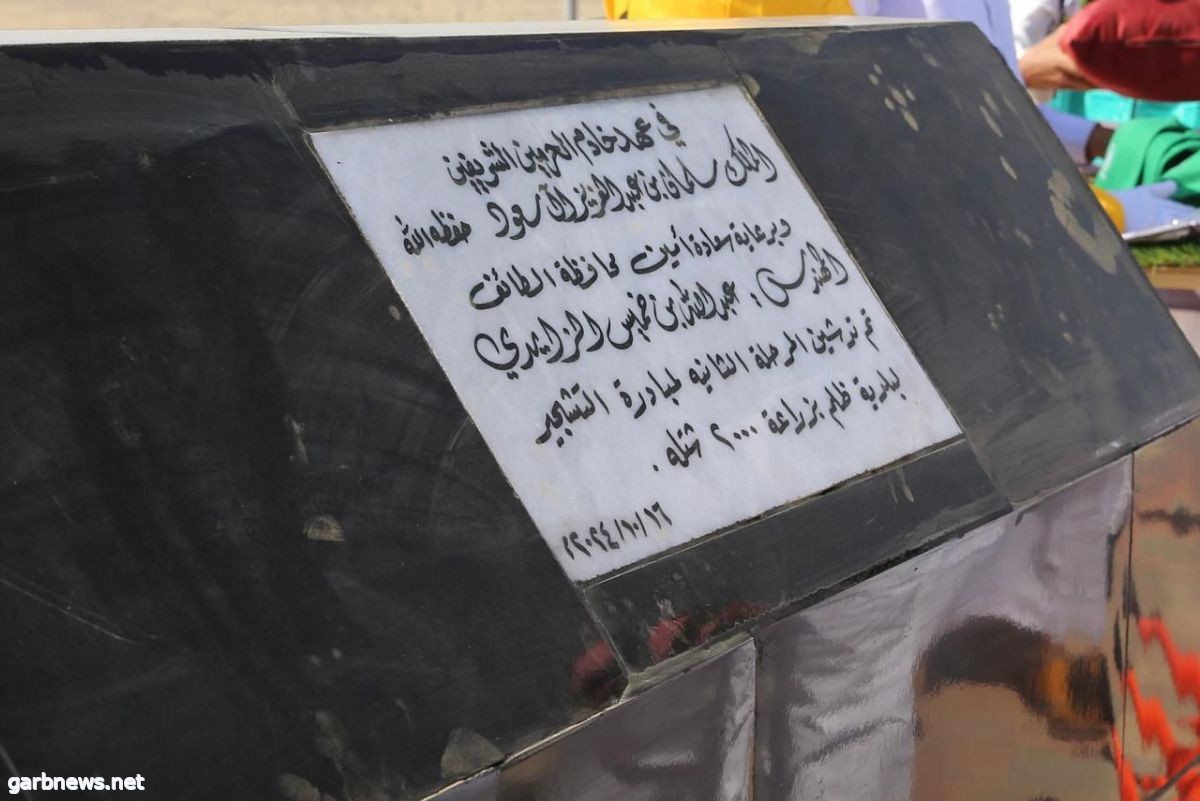 في عهد خادم الحرمين الشريفين
الملك سلمان بن عبد العزيز آل سعود حفظه الله
وبرعاية سعادة أمين محافظة الطائف
المهندس : عبد الله بن خميس الزايدي
تم تدشين المرحلة الثانيه لمبادرة التشجير
لبلدية ظلم بزراعة ٢٠٠٠ شتله .
٢٠٢٤/١٠/١٦م
garbnews.net